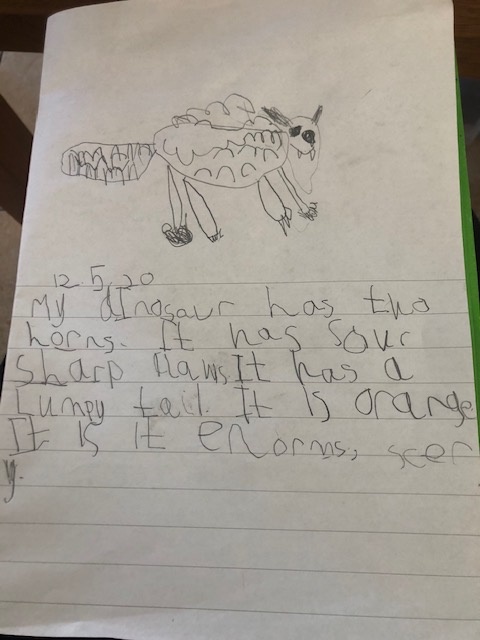 12.5.20
My dinosaur has two
horns. It has Sour
Sharp Claws It has a
Lumpy tail. It Is orange
It Is It enorms, scer
y.